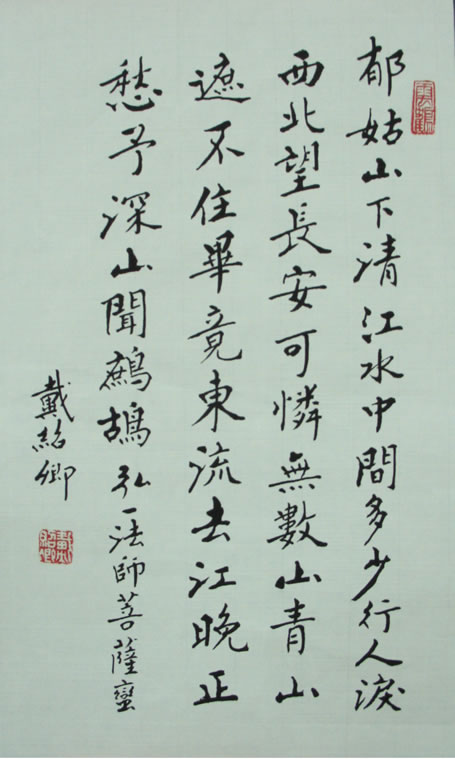 郁姑山下清江水中間多少行人淚
西北望長安可憐無數山青山
遮不住畢竟東流去江晚正
愁予深山聞鷓鴣弘一法師菩薩蠻
戴紹卿